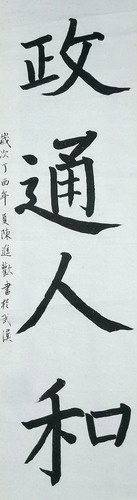 政通人和
歲次丁酉年夏陳進歡書於武漢